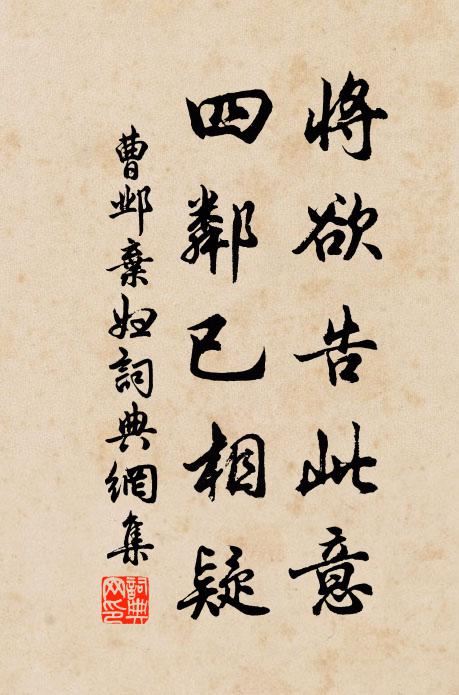 將欲告此意
四鄰已相疑
曹鄴棄妇詞典網集
詞典網印